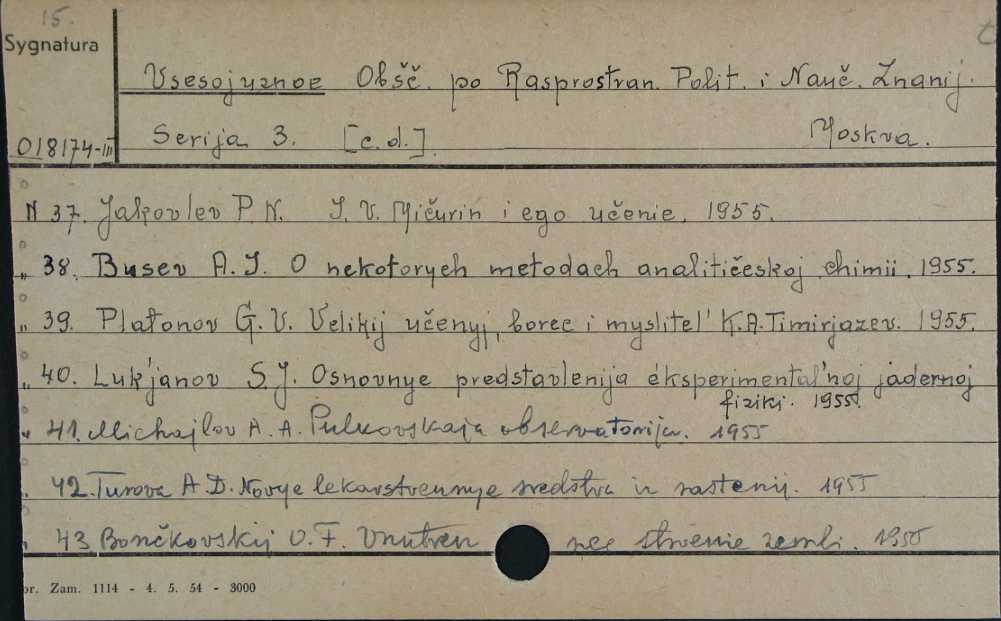 15.
Sygnatura
Vsesojuznoe Obšč. po Rasprostran. Polit. i Nauč. Znanij.
018174-III
Serija 3. [c.d.]. Moskva.
N 37. Jakovlev P. N. I. V. Mičurin i ego učenie. 1955.
„ 38. Busev A. I. O nekotorych metodach analitičeskoj chimii. 1955.
„ 39. Platonov G. V. Velikij učenyj, borec i myslitel' K. A. Timirjazev. 1955.
„ 40. Luk'janov S. J. Osnovnye predstavlenija éksperimental'noj jadernoj
fiziki. 1955.
„ 41. Michajlov A. A. Pulkovskaja observatorija. 1955
„ 42. Turova A. D. Novye lekarstvennye sredstva iz rastenij. 1955
„ 43 Bončkovskij V. F. Vnutren nee stroenie zemli. 1955
or. Zam. 1114 - 4. 5. 54 - 3000